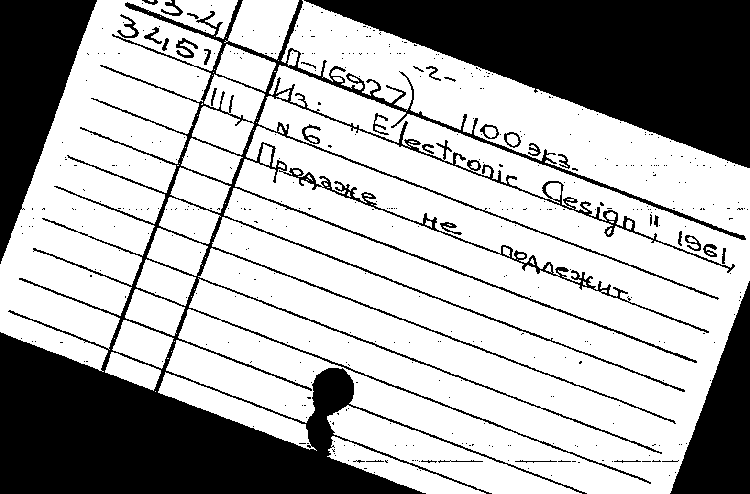 -2-
П-16927). 1100 экз.
34151
Из: "Electronic Design", 1961,
III, N 6.
Продаже не подлежит.